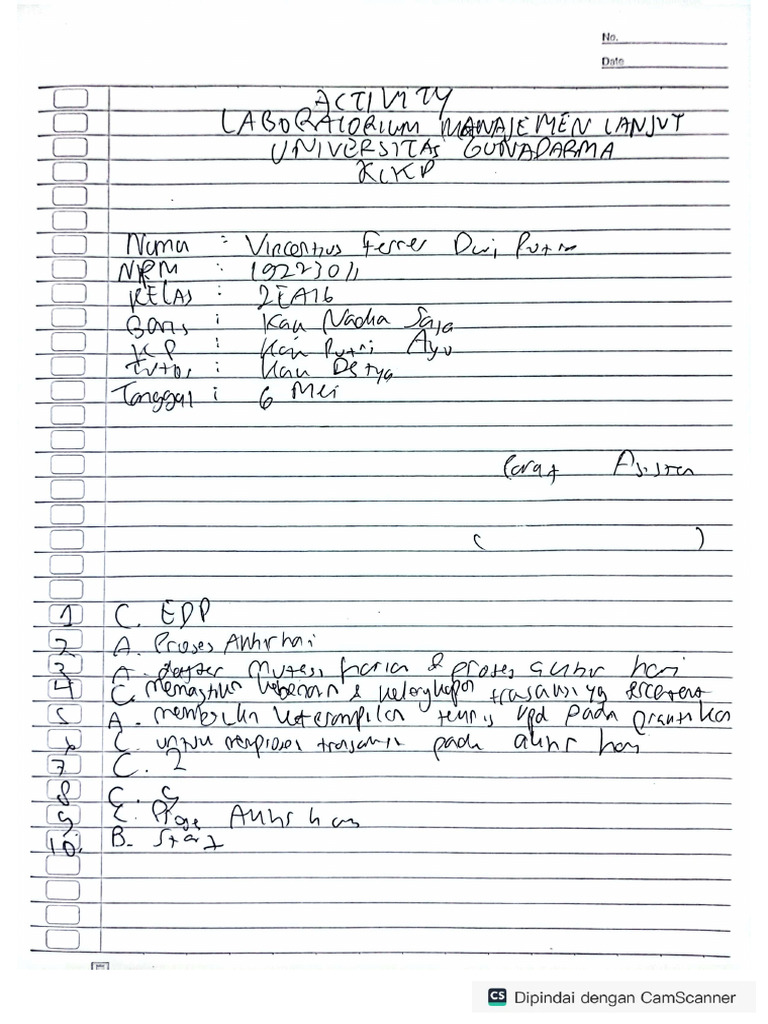 No.
Date
ACTIVITY
LABORATORIUM MANAJEMEN LANJUT
UNIVERSITAS GUNADARMA
KLKP
Nama : Vincentius Ferrer Dwi Putra
NPM :
KELAS : 2EA16
Baris : Kak Nadia Saja
KP : Kak Putri Ayu
Tutor : Kak
Tanggal : 6 Mei
Paraf Asisten
( )
1 C. EDP
2 A. Proses Akhir hari
3 A. daftar Mutasi harian & proses akhir hari
4 C. memastikan kebenaran & kelengkapan transaksi yg
5 A. memberikan keterampilan teknis pada praktikan
6 C. untuk memproses transaksi pada akhir hari
7 C. 2
8 C.
9 Akhir hari
10. B. Start
CS Dipindai dengan CamScanner